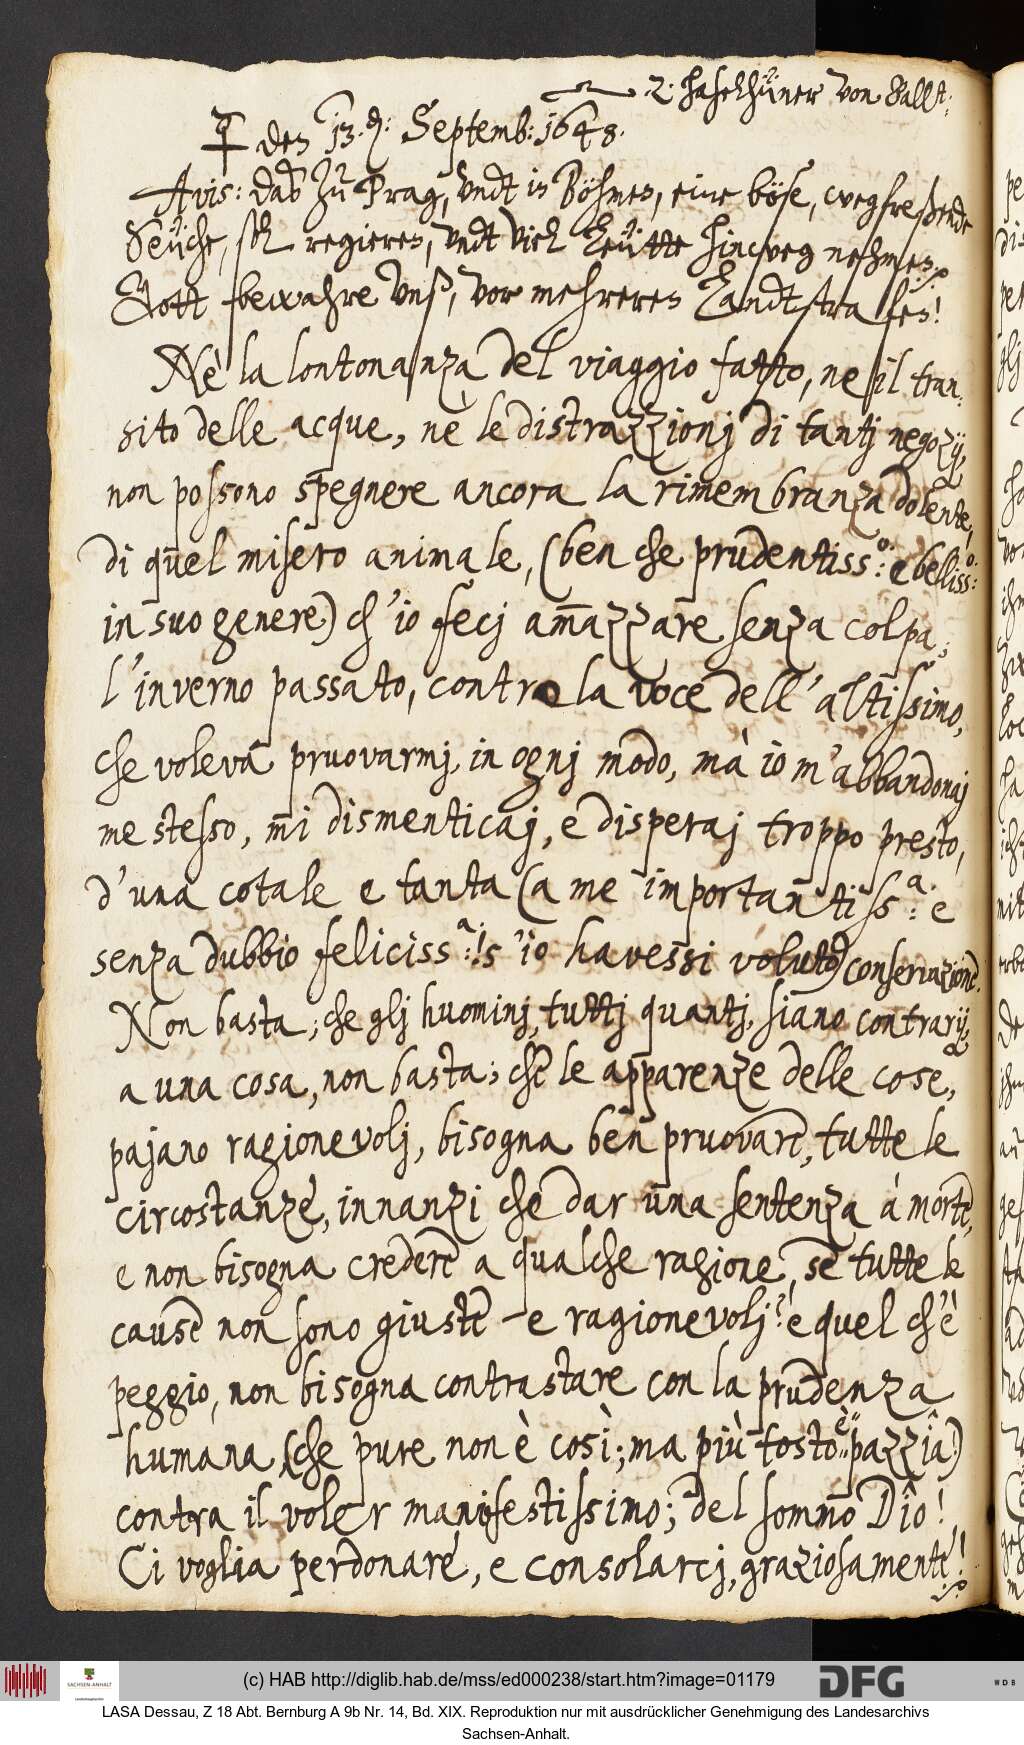 2. haselhüner von Ballst:
☿ den 13. d: Septemb: 1648.
Avis: daß zu Prag, undt in Böhmen, eine böse, wegfreßende
Seüche, soll regieren, undt viel Leütte hinweg nehmen.
Gott bewahre unß, vor mehreren Landtstrafen!
Nè la lontonanza del viaggio fatto, ne il tran-
sito delle acque, nè le distrazzionj di tantj negozij,
non possono spegnere ancora la rimembranza dolente,
di quel misero animale, (ben che prudentiss:o e belliss:o
in suo genere) ch'io fecj am̄azzare senza colpa,
l'inverno passato, contra la voce dell'altissimo,
che voleva pruovarmj, in ognj modo, mà io m'abbandonaj
me stesso, mi dismenticaj, e disperaj troppo presto,
d'una cotale e tanta (a me importantiss:a e
senza dubbio feliciss:a! s'io havessi voluto) conservazione.
Non basta, che glj huominj, tuttj quantj, siano contrarij,
a una cosa, non basta; che le apparenze delle cose,
pajano ragionevolj, bisogna ben pruovare, tutte le
circostanze, innanzi che dar una sentenza à morte,
e non bisogna credere a qualche ragione, se tutte le
cause non sono giuste e ragionevolj? e quel ch'è
peggio, non bisogna contrastare con la prudenza
humana, (che pure non è così; ma più tosto è pazzia!)
contra il voler manifestissimo; del sommo Dio!
Ci voglia perdonare, e consolarcj, graziosamente!
SACHSEN-ANHALT
(c) HAB http://diglib.hab.de/mss/ed000238/start.htm?image=01179
DFG
WDB
LASA Dessau, Z 18 Abt. Bernburg A 9b Nr. 14, Bd. XIX. Reproduktion nur mit ausdrücklicher Genehmigung des Landesarchivs
Sachsen-Anhalt.